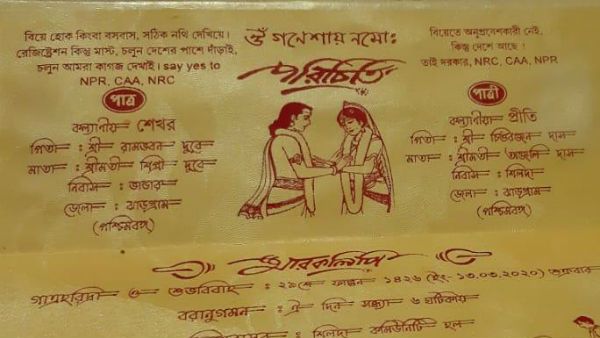 বিয়ে হোক কিংবা বসবাস, সঠিক নথি দেখিয়ে।
রেজিষ্ট্রেশন কিন্তু মাস্ট, চলুন দেশের পাশে দাঁড়াই,
চলুন আমরা কাগজ দেখাই। say yes to
NPR, CAA, NRC
ওঁ গণেশায় নমোঃ
বিয়েতে অনুপ্রবেশকারী নেই,
কিন্তু দেশে আছে !
তাই দরকার, NRC, CAA, NPR
পরিচিতি
পাত্র
কল্যাণীয় শেখর
পিতা : শ্রী রামভবন দুবে
মাতা : শ্রীমতী শিপ্রা দুবে
নিবাস : ভান্ডার
জেলা : ঝাড়গ্রাম
(পশ্চিমবঙ্গ)
পাত্রী
কল্যাণীয়া প্রীতি
পিতা : শ্রী চিত্তরঞ্জন দাস
মাতা : শ্রীমতী অঞ্জলি দাস
নিবাস : শিলদা
জেলা : ঝাড়গ্রাম
(পশ্চিমবঙ্গ)
স্মারকলিপি
গাত্রহরিদ্রা ও শুভবিবাহ : ২৯শে ফাল্গুন ১৪২৬ (ইং ১৩.০৩.২০২০) শুক্রবার
বরানুগমন : ঐ দিন সন্ধ্যা ৬ ঘটিকায়
: শিলদা কমিউনিটি হল